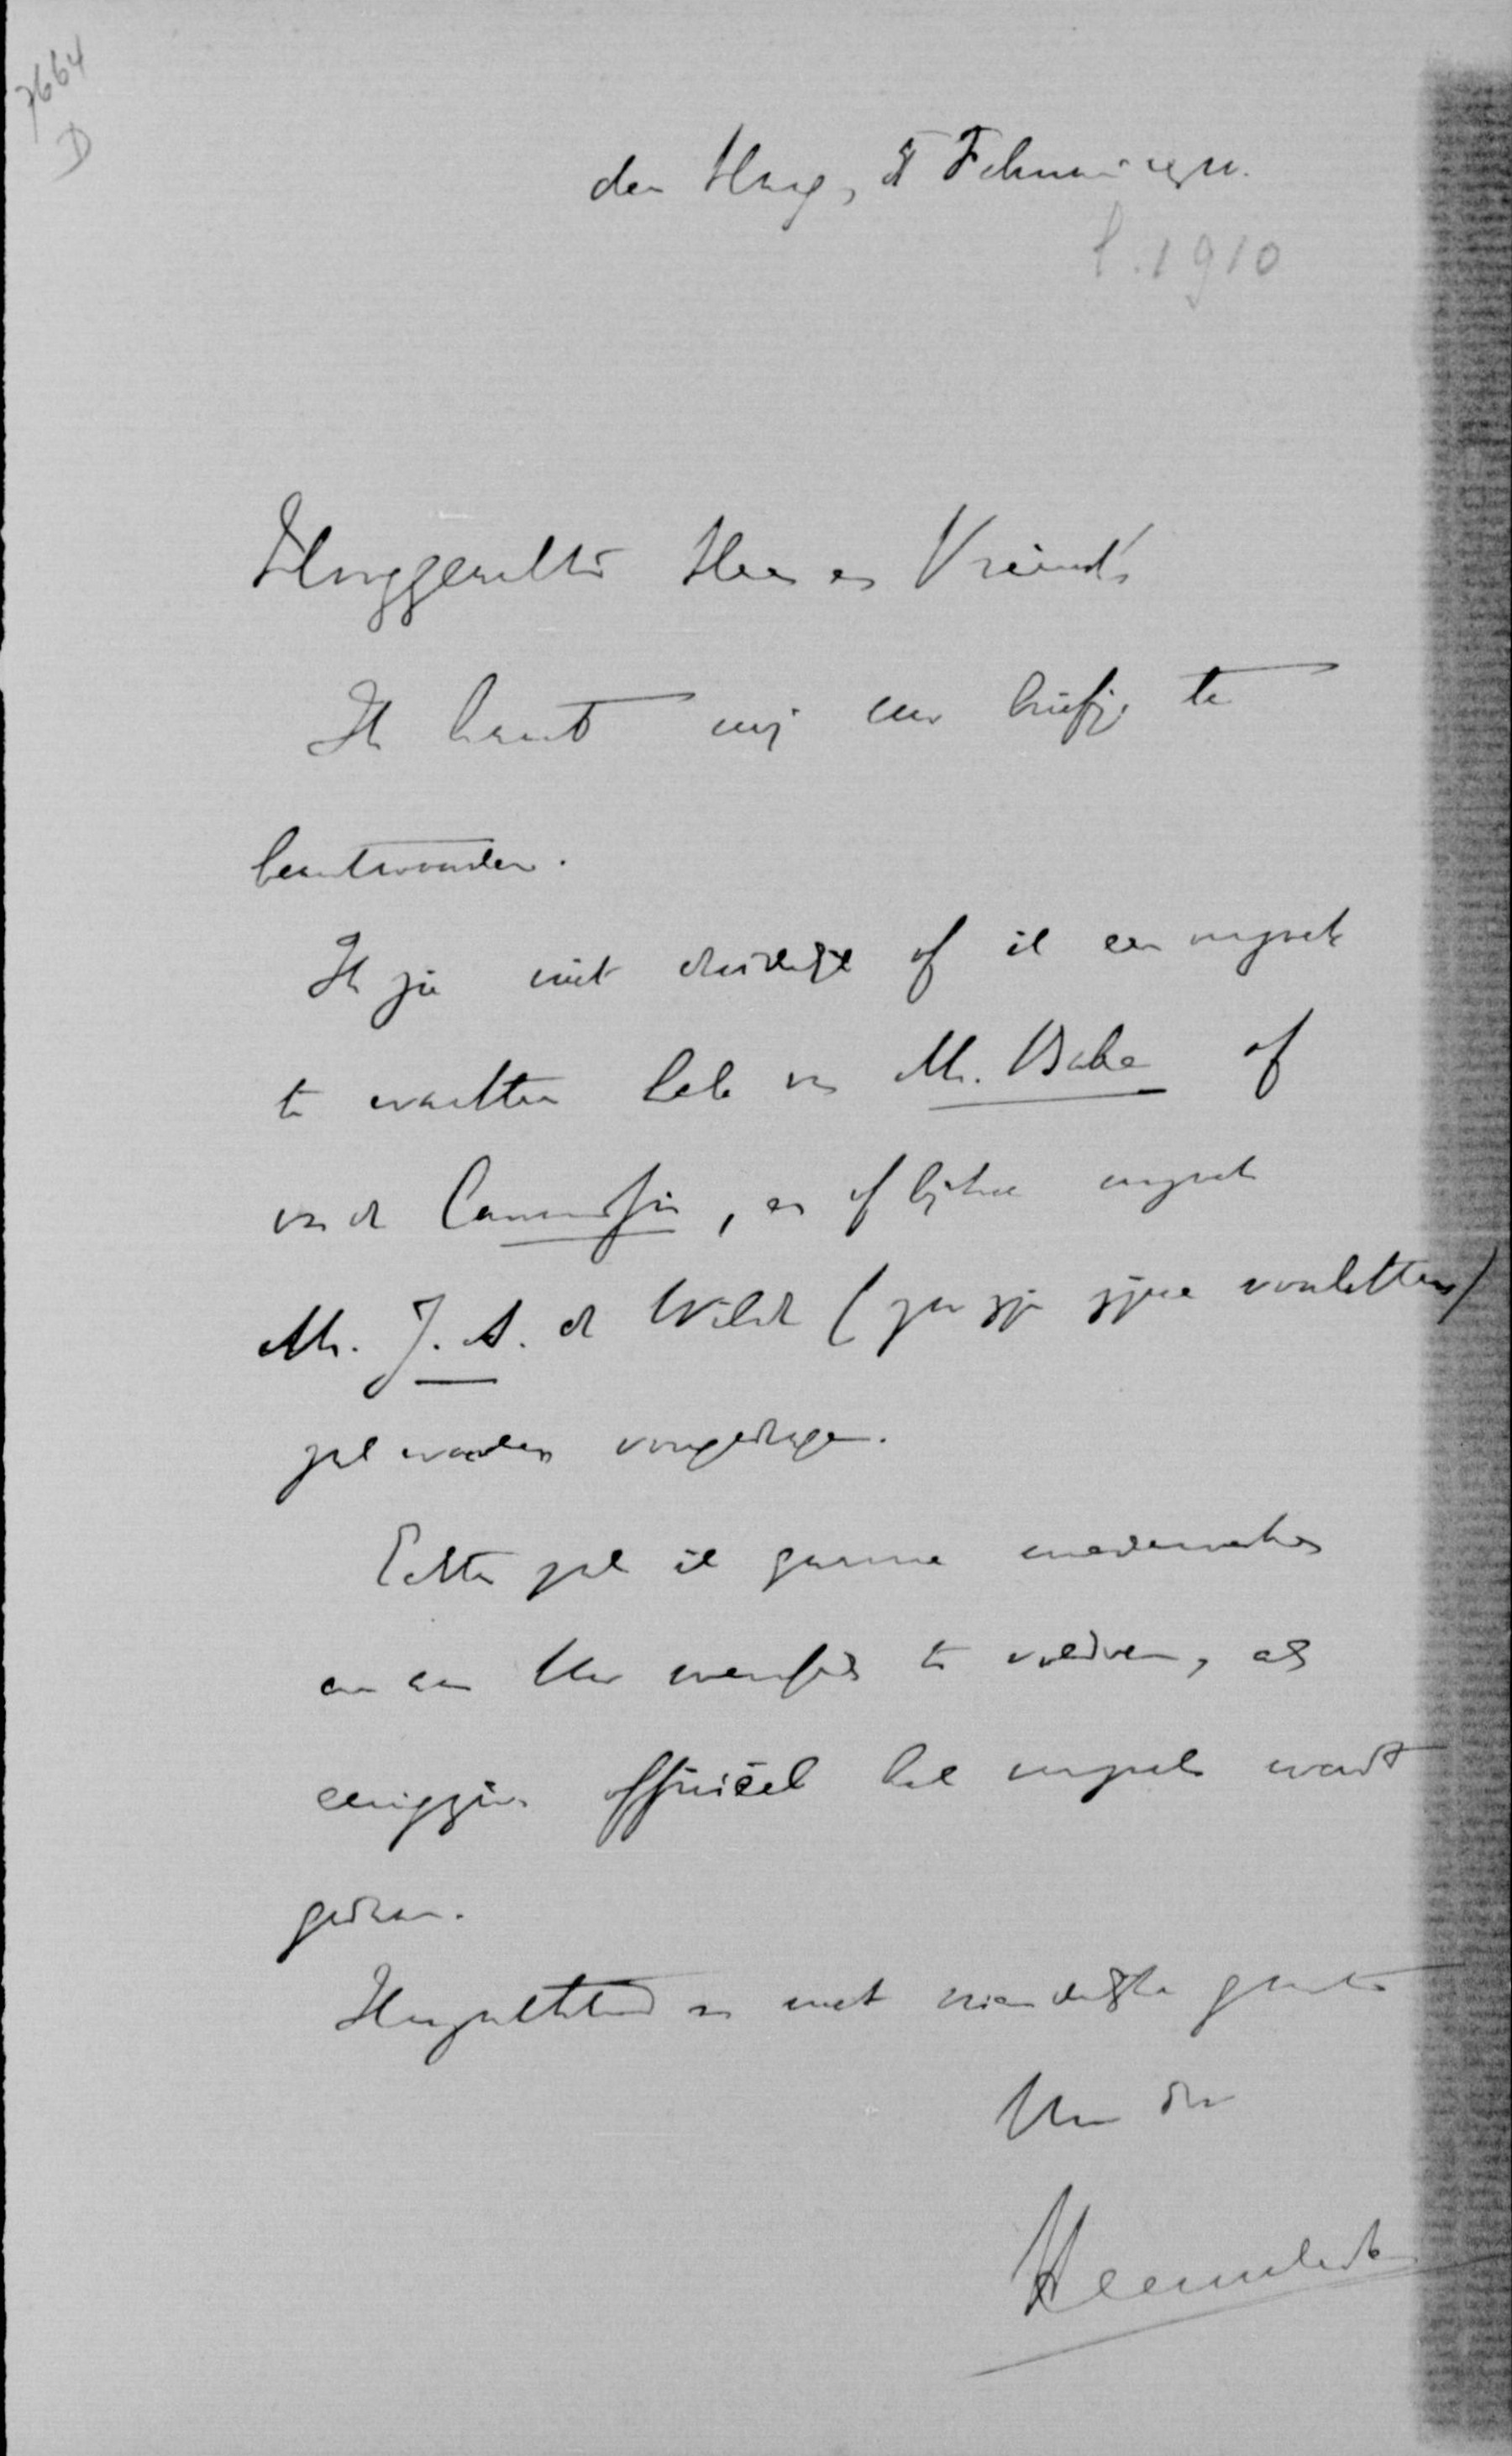 7664
D
den Haag, Februari 1910.
l. 1910
Hooggeachte Heer en Vriend,
Ik haast mij Uw briefje te
beantwoorden.
Ik zie niet duidelijk of ik een verzoek
te wachten heb van Mr. of
van de Commissie, en of bij het verzoek
Mr. J. A. de Wilde (zoo zijn zijne voorletters)
zal worden voorgedragen.
Echter zal ik gaarne medewerken
om aan Uw wensch te voldoen, als
eenigszins officieel het verzoek wordt
gedaan.
Hoogachtend en met vriendelijke groeten
Uw dw
Heemskerk